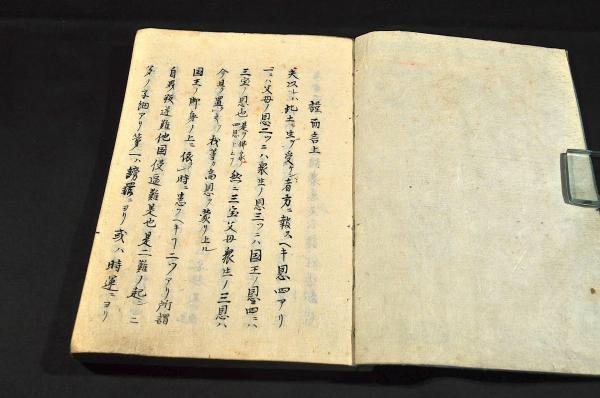 諌而言上
夫以レハ此土ニ生ヲ受ケン者方ニ報スヘキ恩四アリ
一ニハ父母ノ恩二ツニハ衆生ノ恩三ツニハ国王ノ恩四ニハ
三宝ノ恩也 然ニ三宝父母衆生ノ三恩ハ
今且ク置ク我等カ高恩ヲ蒙リ上ル
国王ノ御身ノ上ニ依時ニ患フヘキ二ツアリ所謂
自界叛逆難他国侵逼難是也是二難ノ起ニニ
ノ子細アリ一ハ謗罪ニヨリ或ハ時運ニヨリ